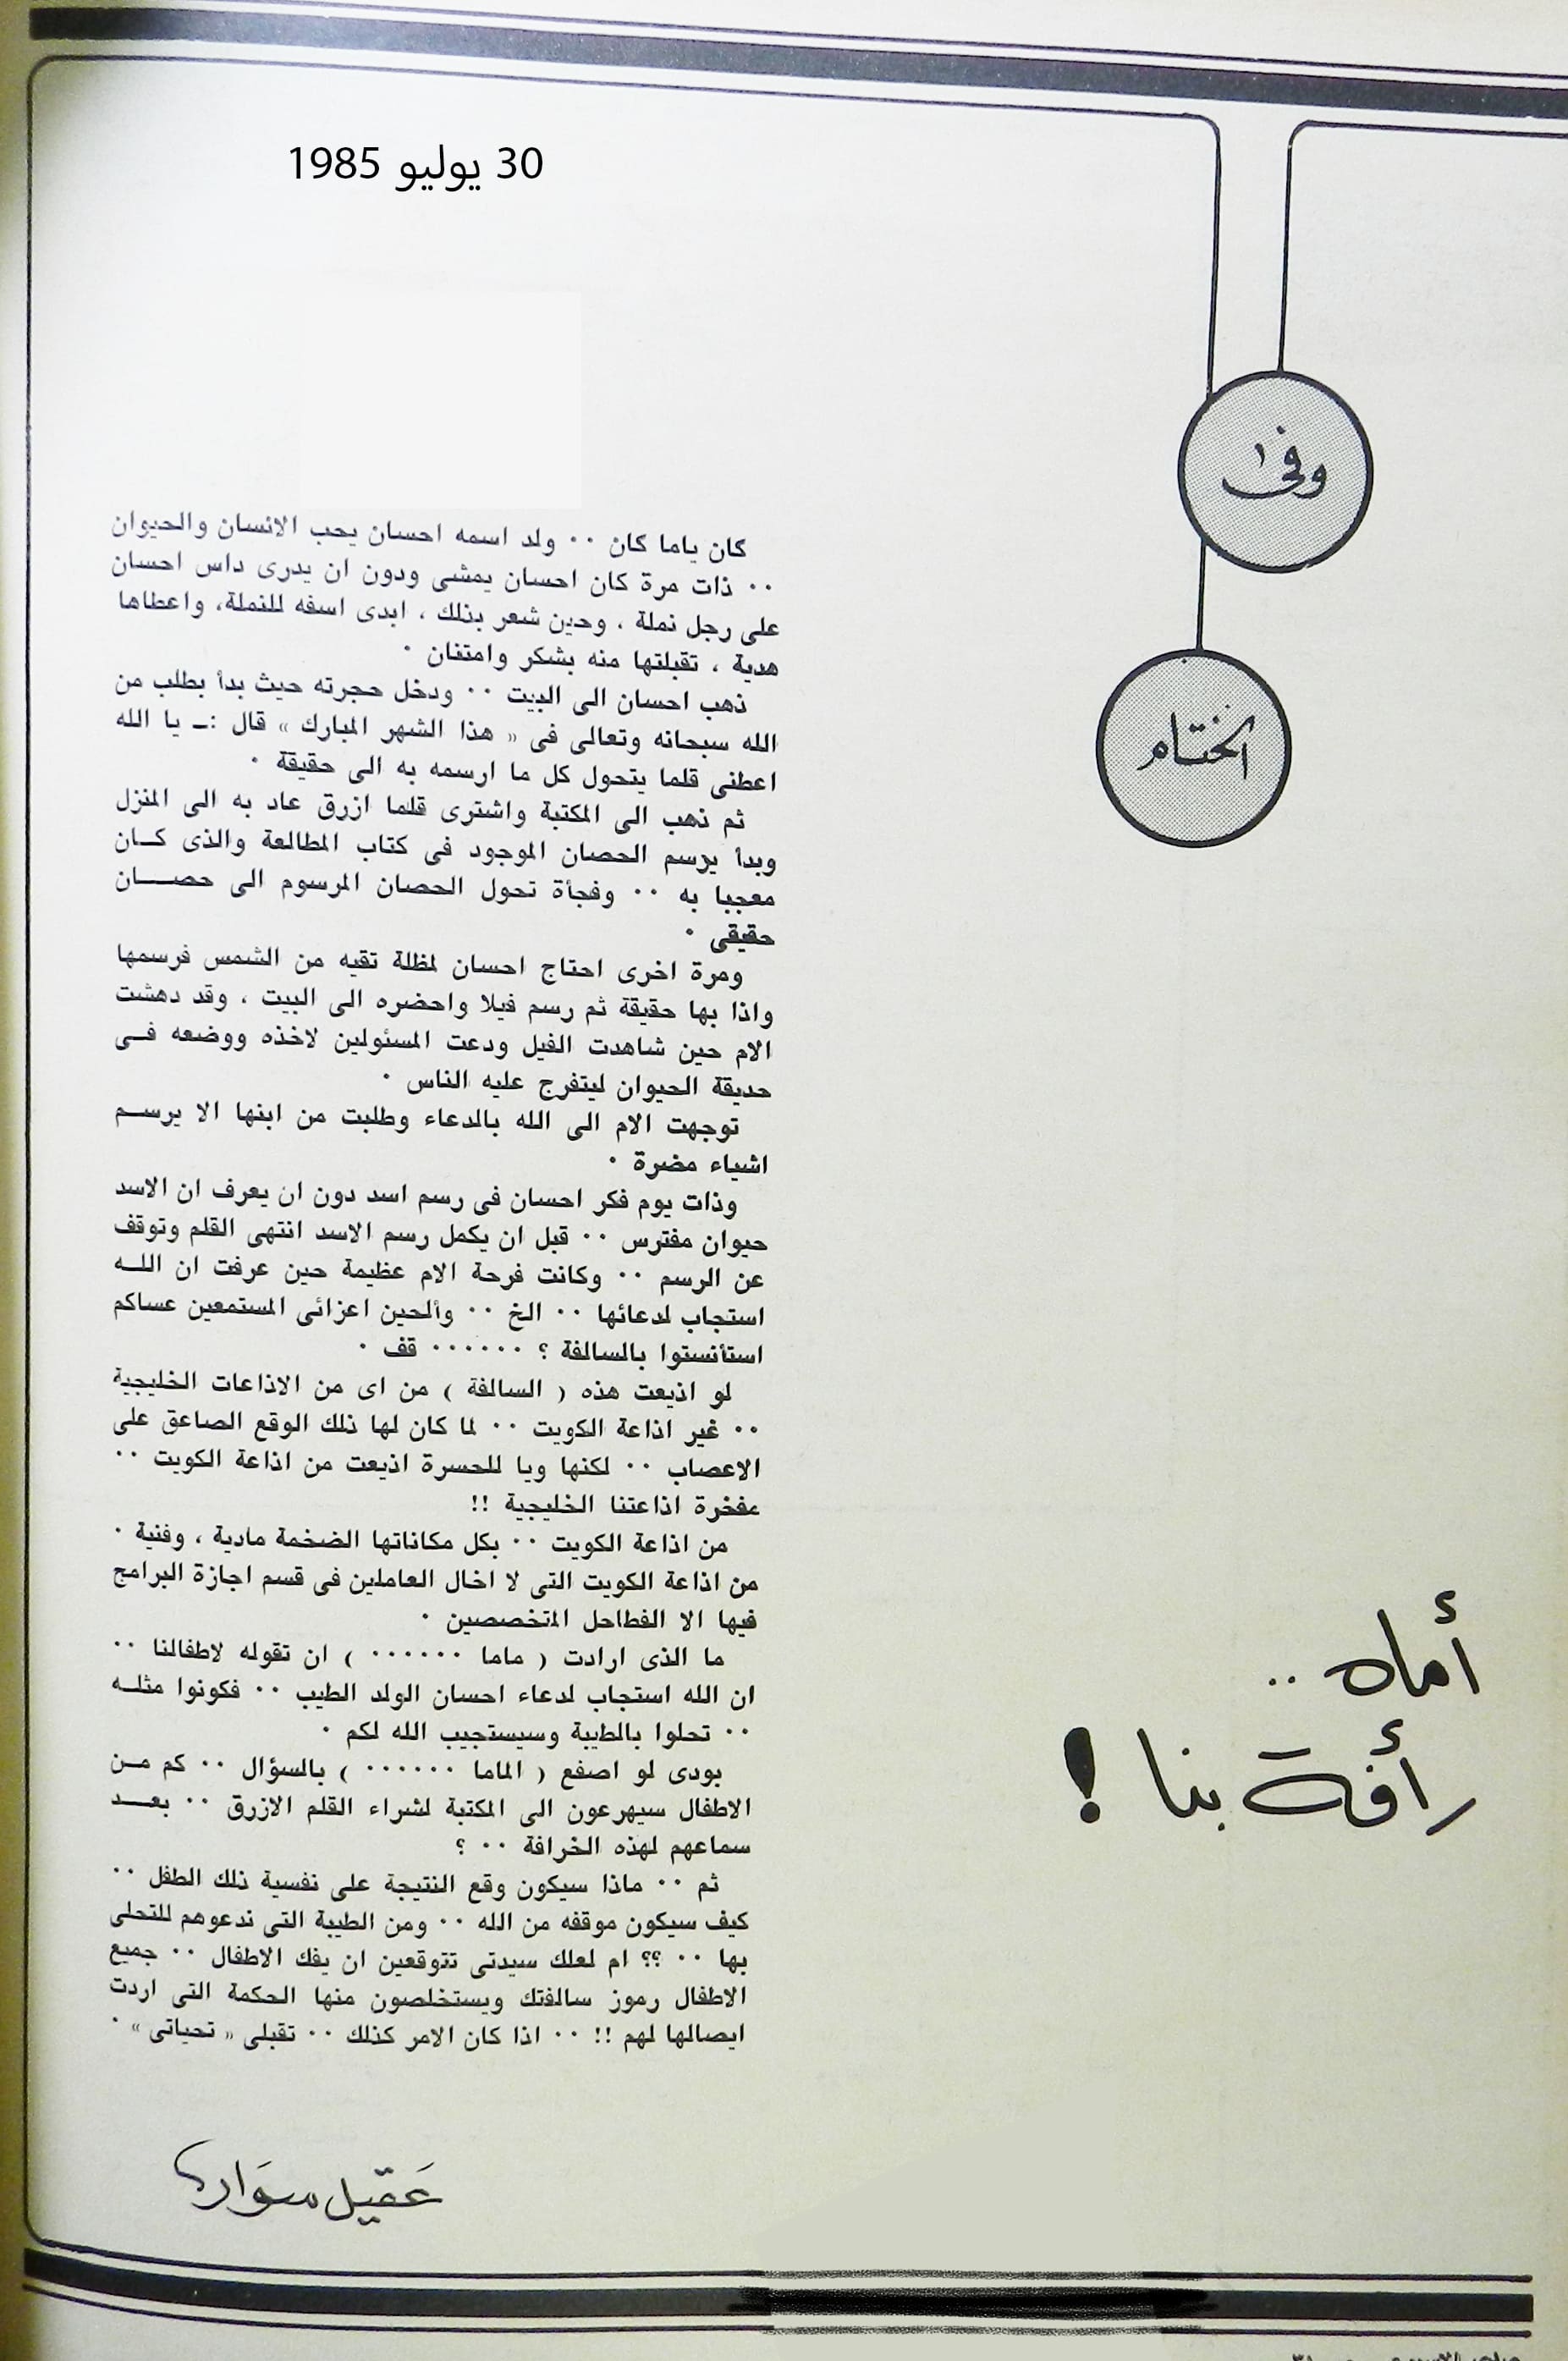 30 يوليو 1985
وفى
الختام
أماه ..
رأفة بنا !
كان ياما كان ٠٠ ولد اسمه احسان يحب الانسان والحيوان
٠٠ ذات مرة كان احسان يمشى ودون ان يدرى داس احسان
على رجل نملة ، وحين شعر بذلك ، ابدى اسفه للنملة، واعطاها
هدية ، تقبلتها منه بشكر وامتنان ٠
ذهب احسان الى البيت ٠٠ ودخل حجرته حيث بدأ بطلب من
الله سبحانه وتعالى فى « هذا الشهر المبارك » قال :ــ يا الله
اعطنى قلما يتحول كل ما ارسمه به الى حقيقة ٠
ثم ذهب الى المكتبة واشترى قلما ازرق عاد به الى المنزل
وبدأ يرسم الحصان الموجود فى كتاب المطالعة والذى كــان
معجبا به ٠٠ وفجأة تحول الحصان المرسوم الى حصـــان
حقيقى ٠
ومرة اخرى احتاج احسان لمظلة تقيه من الشمس فرسمها
واذا بها حقيقة ثم رسم فيلا واحضره الى البيت ، وقد دهشت
الام حين شاهدت الفيل ودعت المسئولين لاخذه ووضعه فــى
حديقة الحيوان ليتفرج عليه الناس ٠
توجهت الام الى الله بالدعاء وطلبت من ابنها الا يرســم
اشياء مضرة ٠
وذات يوم فكر احسان فى رسم اسد دون ان يعرف ان الاسد
حيوان مفترس ٠٠ قبل ان يكمل رسم الاسد انتهى القلم وتوقف
عن الرسم ٠٠ وكانت فرحة الام عظيمة حين عرفت ان اللــه
استجاب لدعائها ٠٠ الخ ٠٠ وألحين اعزائى المستمعين عساكم
استأنستوا بالسالفة ؟ ٠٠٠٠٠٠ قف ٠
لو اذيعت هذه ( السالفة ) من اى من الاذاعات الخليجية
٠٠ غير اذاعة الكويت ٠٠ لما كان لها ذلك الوقع الصاعق على
الاعصاب ٠٠ لكنها ويا للحسرة اذيعت من اذاعة الكويت ٠٠
مفخرة اذاعتنا الخليجية !!
من اذاعة الكويت ٠٠ بكل مكاناتها الضخمة مادية ، وفنية ٠
من اذاعة الكويت التى لا اخال العاملين فى قسم اجازة البرامج
فيها الا الفطاحل المتخصصين ٠
ما الذى ارادت ( ماما ٠٠٠٠٠٠ ) ان تقوله لاطفالنا ٠٠
ان الله استجاب لدعاء احسان الولد الطيب ٠٠ فكونوا مثلــه
٠٠ تحلوا بالطيبة وسيستجيب الله لكم ٠
بودى لو اصفع ( الماما ٠٠٠٠٠٠ ) بالسؤال ٠٠ كم مــن
الاطفال سيهرعون الى المكتبة لشراء القلم الازرق ٠٠ بعـــد
سماعهم لهذه الخرافة ٠٠ ؟
ثم ٠٠ ماذا سيكون وقع النتيجة على نفسية ذلك الطفل ٠٠
كيف سيكون موقفه من الله ٠٠ ومن الطيبة التى ندعوهم للتحلى
بها ٠٠ ؟؟ ام لعلك سيدتى تتوقعين ان يفك الاطفال ٠٠ جميع
الاطفال رموز سالفتك ويستخلصون منها الحكمة التى اردت
ايصالها لهم !! ٠٠ اذا كان الامر كذلك ٠٠ تقبلى « تحياتى » ٠
عقيل سوار